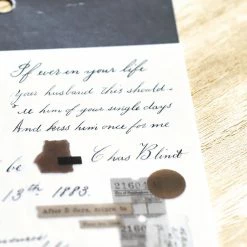 If ever in your life
your husband this should
him of your single days
And kiss him once for me
be Chas Blinit
13th 1883.
21601
21601
After 5 days, return to